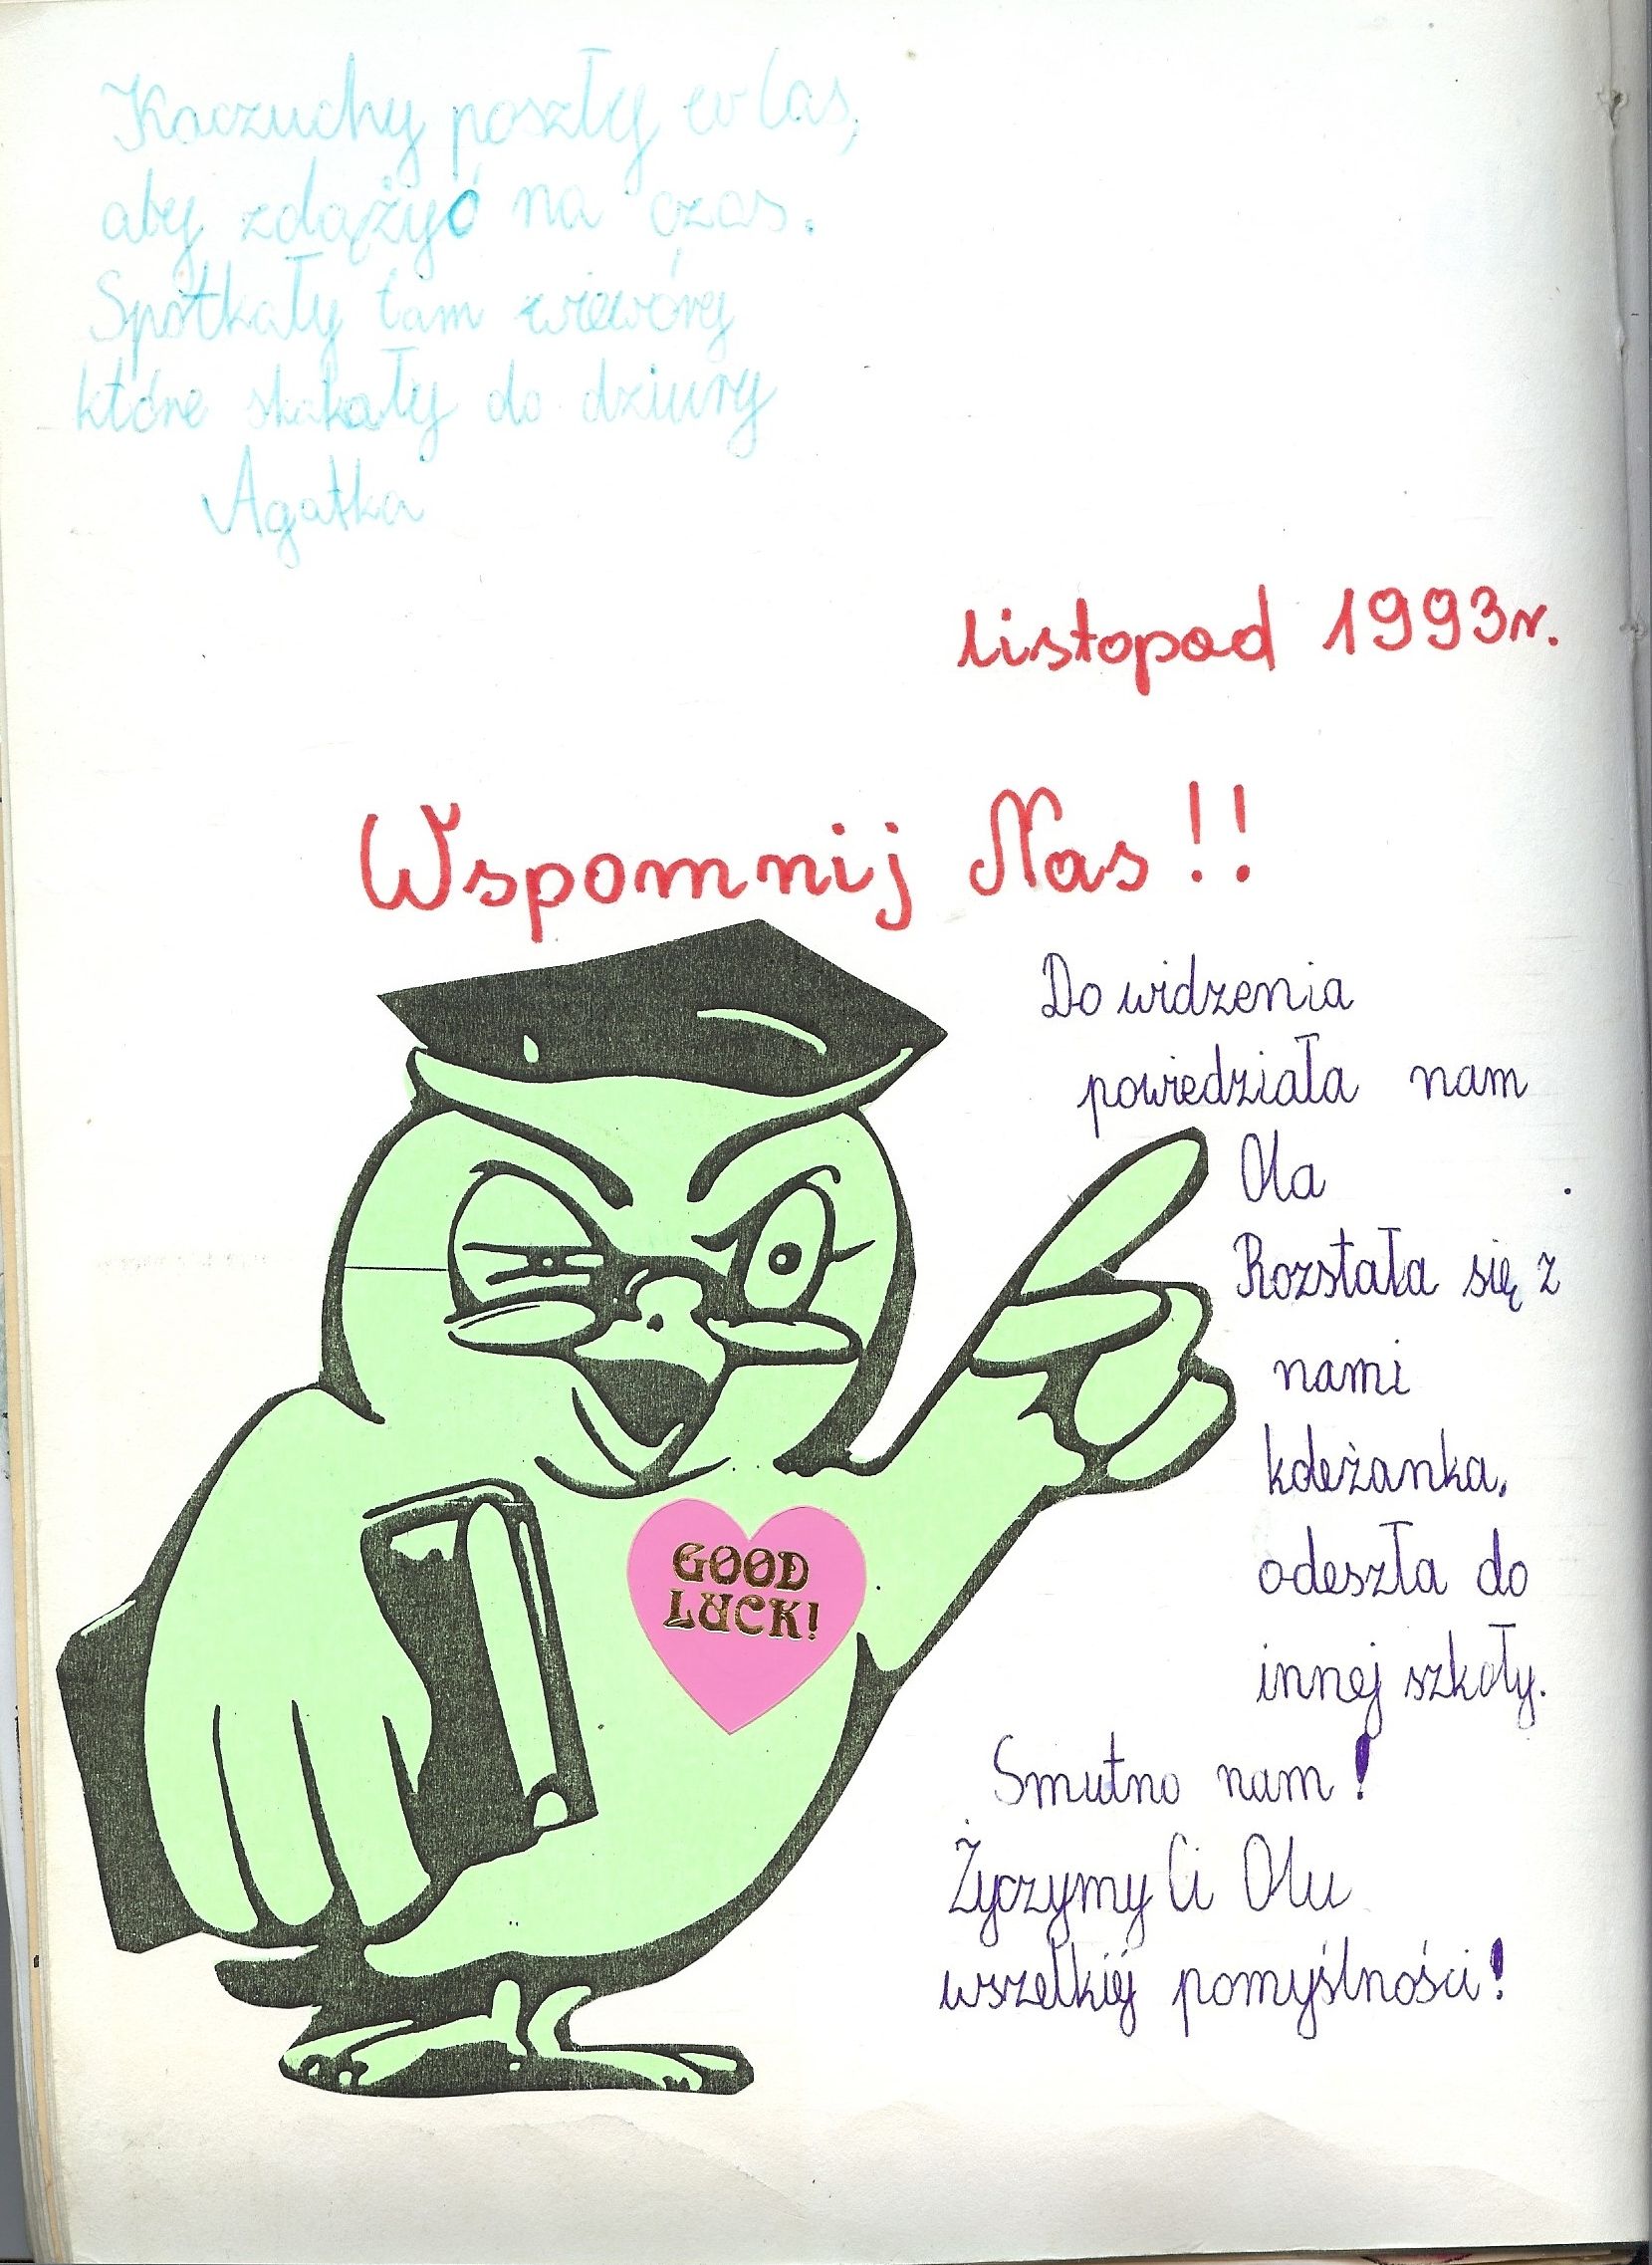 Kaczuchy poszły w las,
aby zdążyć na czas.
Spotkały tam wiewióry
które skakały do dziury
Agatka
listopad 1993r.
Wspomnij Nas!!
Do widzenia
powiedziała nam
Ola
Rozstała się z
nami
koleżanka,
odeszła do
innej szkoły.
Smutno nam!
Życzymy Ci Olu
wszelkiej pomyślności!
GOOD
LUCK!